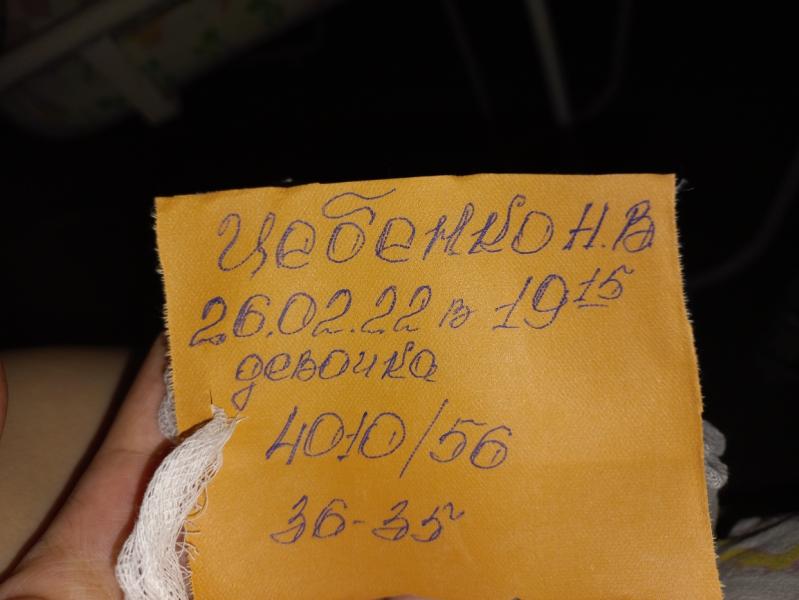 Цебенко Н.В
26.02.22 в 19 15
девочка
4010/56
36-35